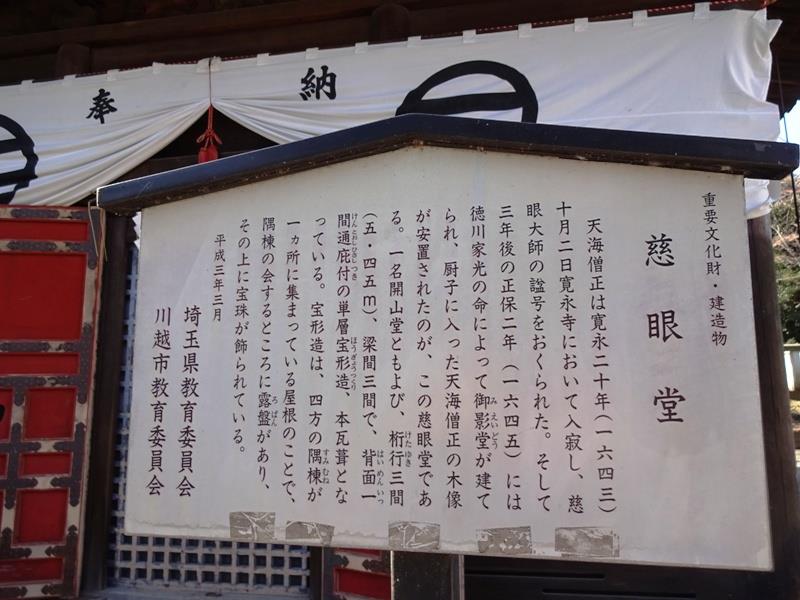 奉納
重要文化財・建造物
慈眼堂
天海僧正は寛永二十年(一六四三)
十月二日寛永寺において入寂し、慈
眼大師の諡号をおくられた。そして
三年後の正保二年(一六四五)には
徳川家光の命によって御影堂が建て
みえいどう
られ、厨子に入った天海僧正の木像
が安置されたのが、この慈眼堂であ
る。一名開山堂ともよび、桁行三間
けたゆき
(五・四五m)、梁間三間で、背面一
はいめんいっ
間通庇付の単層宝形造、本瓦葺とな
けんとおしひさしつき
ほうぎょうつくり
っている。宝形造は、四方の隅棟が
すみむね
一ヵ所に集まっている屋根のことで、
隅棟の会するところに露盤があり、
ろばん
その上に宝珠が飾られている。
平成三年三月
埼玉県教育委員会
川越市教育委員会